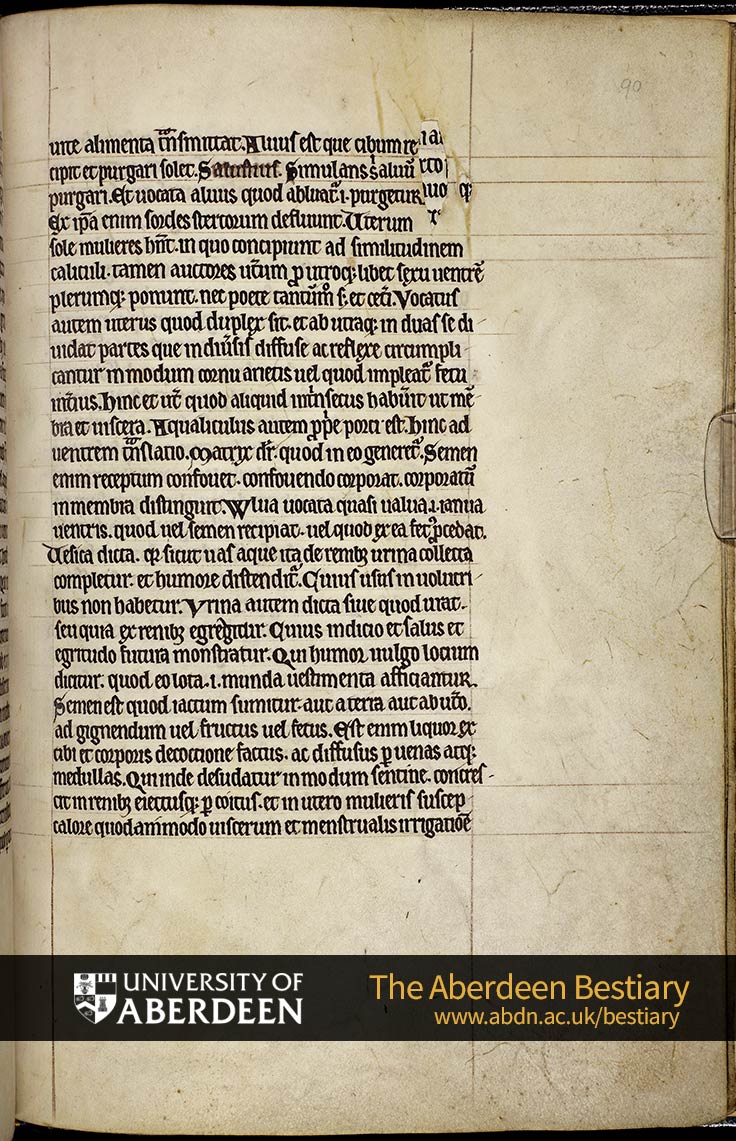 90
uite alimenta t̄nsmittat. Aluus est que cibum re
cipit et purgari solet. Salustius. Simulans s̄ aluū
purgari. Et uocata aluus quod abluat᷑ .i. purgetur
Ex ip̄a enim sordes stercorum defluunt. Uterum
sole mulieres hn̄t. in quo concipiunt ad similitudinem
caliculi. tamen auctores ut̄um ꝑ utroqꝫ libet sexu uentrē
plerumqꝫ ponunt. nec poete tantūm° s; et cet̄i. Vocatus
autem uterus quod duplex sit. et ab utraqꝫ in duas se di
uidat partes que in diũsis diffuse ac reflexe circumpli
cantur in modum cornu arietis uel quod impleat᷑ fetu
int̄ius. Hinc et ut̄ quod aliquid int̄nsecus habũit ut mē
bra et uiscera. Aqualiculus autem pp̄e porci est. Hinc ad
uentrem t̄nslatio. Matrix dr̄. quod in eo generet᷑. Semen
enim receptum confouet. confouendo corporat. corporatū
in membra distinguit. Wlua uocata quasi ualua .i. ianua
uentris. quod uel semen recipiat. uel quod ex ea fet᷒ p̄cedat.
Uesica dicta. qꝛ sicut uas aque ita de renibꝫ urina collecta
completur. et humore distendit᷑. Cuius usus in uolucri
bus non habetur. Vrina autem dicta siue quod urat.
seu quia ex renibꝫ egregitur. Cuius indicio et salus et
egritudo futura monstratur. Qui humor uulgo locium
dicitur. quod eo lota .i. munda uestimenta afficiantur.
Semen est quod iactum sumitur. aut a terra aut ab ut̄o.
ad gignendum uel fructus uel fetus. Est enim liquor ex
cibi et corporis decoctione factus. ac diffusus ꝑ uenas atqꝫ
medullas. Qui inde desudatur in modum sentine. concres
cit in renibꝫ eiectusqꝫ ꝑ coitus. et in utero mulieris suscep
calore quodammodo uiscerum et menstrualis irrigatiōe
UNIVERSITY OF
ABERDEEN
The Aberdeen Bestiary
www.abdn.ac.uk/bestiary